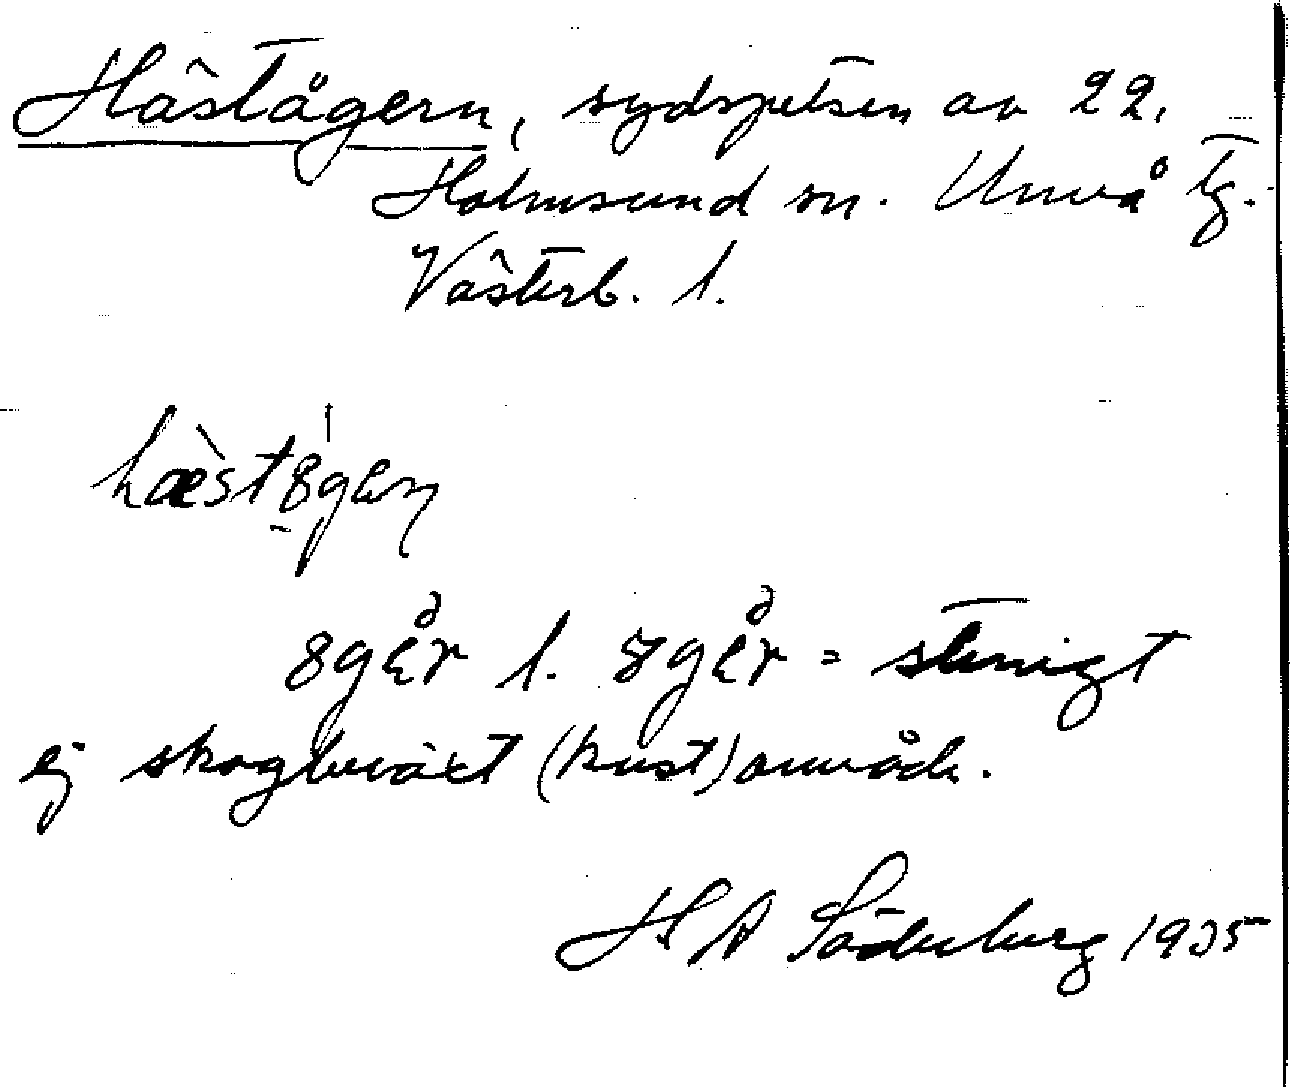 Hästågern, sydspetsen av 22.
Holmsund sn. Umeå tg.
Västerb. l.
hæst8gən
8gər l. 8gər = stenigt
ej skogbeväxt (kust)område.
H A Söderberg 1935